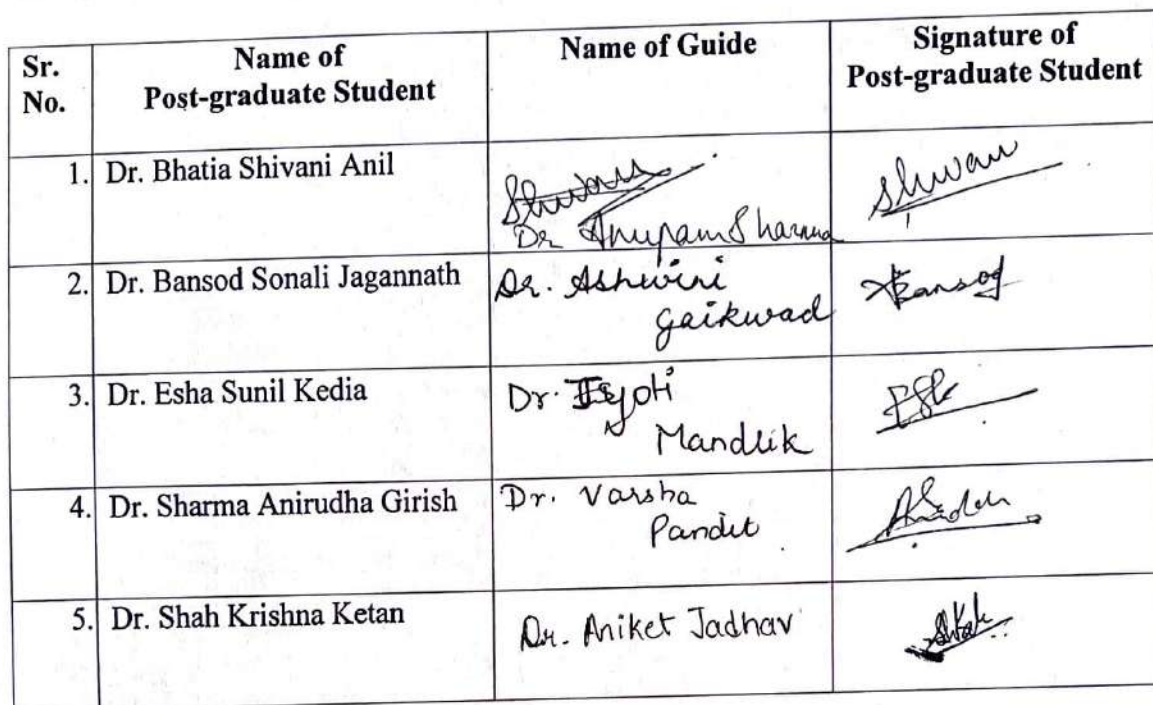 Sr. No.
Name of
Post-graduate Student
Name of Guide
Signature of
Post-graduate Student
1. Dr. Bhatia Shivani Anil
Dr Anupam Sharma
2. Dr. Bansod Sonali Jagannath
Dr. Ashwini
Gaikwad
Bansod
3. Dr. Esha Sunil Kedia
Dr. Jyoti
Mandlik
4. Dr. Sharma Anirudha Girish
Dr. Varsha
Pandit
5. Dr. Shah Krishna Ketan
Dr. Aniket Jadhav